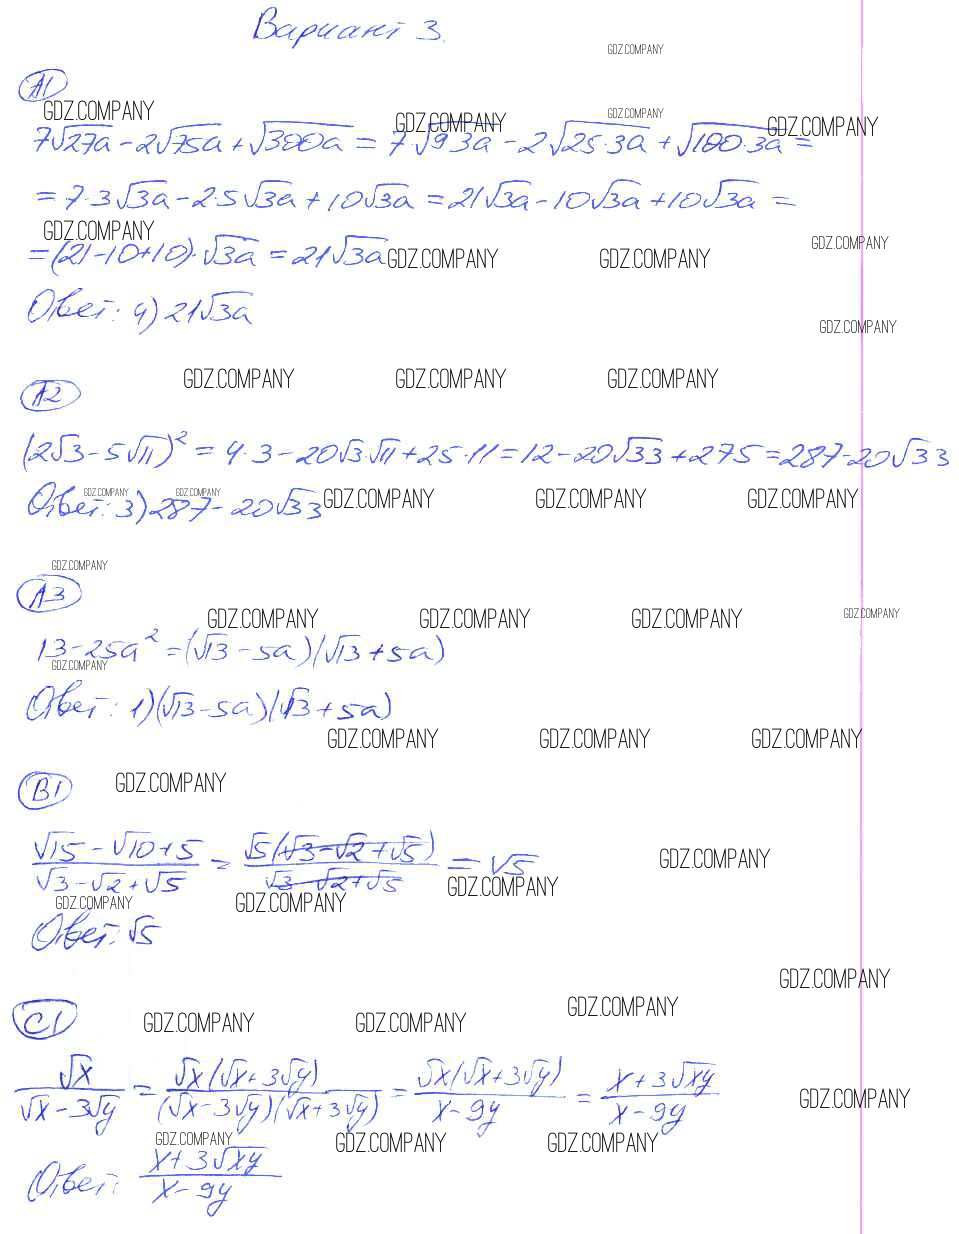 Вариант 3.
GDZ.COMPANY
А1
GDZ.COMPANY GDZ.COMPANY GDZ.COMPANY GDZ.COMPANY
7√27a - 2√75a + √300a = 7√9·3a - 2√25·3a + √100·3a =
= 7·3√3a - 2·5√3a + 10√3a = 21√3a - 10√3a + 10√3a =
GDZ.COMPANY GDZ.COMPANY
= (21-10+10)·√3a = 21√3a
GDZ.COMPANY GDZ.COMPANY
Ответ: 4) 21√3a
GDZ.COMPANY
GDZ.COMPANY GDZ.COMPANY GDZ.COMPANY
А2
(2√3 - 5√11)² = 4·3 - 20√3·√11 + 25·11 = 12 - 20√33 + 275 = 287-20√33
GDZ.COMPANY GDZ.COMPANY GDZ.COMPANY GDZ.COMPANY GDZ.COMPANY
Ответ: 3) 287 - 20√33
GDZ.COMPANY
А3
GDZ.COMPANY GDZ.COMPANY GDZ.COMPANY GDZ.COMPANY
13 - 25a² = (√13 - 5a)(√13 + 5a)
GDZ.COMPANY
Ответ: 1) (√13 - 5a)(√13 + 5a)
GDZ.COMPANY GDZ.COMPANY GDZ.COMPANY
В1
GDZ.COMPANY
(√15 - √10 + 5)/(√3 - √2 + √5) = √5(√3 - √2 + √5)/(√3 - √2 + √5) = √5
GDZ.COMPANY GDZ.COMPANY
GDZ.COMPANY GDZ.COMPANY
Ответ: √5
GDZ.COMPANY
GDZ.COMPANY
С1
GDZ.COMPANY GDZ.COMPANY
√x/(√x - 3√y) = √x(√x + 3√y)/((√x - 3√y)(√x + 3√y)) = √x(√x + 3√y)/(x - 9y) = (x + 3√xy)/(x - 9y)
GDZ.COMPANY
GDZ.COMPANY GDZ.COMPANY GDZ.COMPANY
Ответ: (x + 3√xy)/(x - 9y)